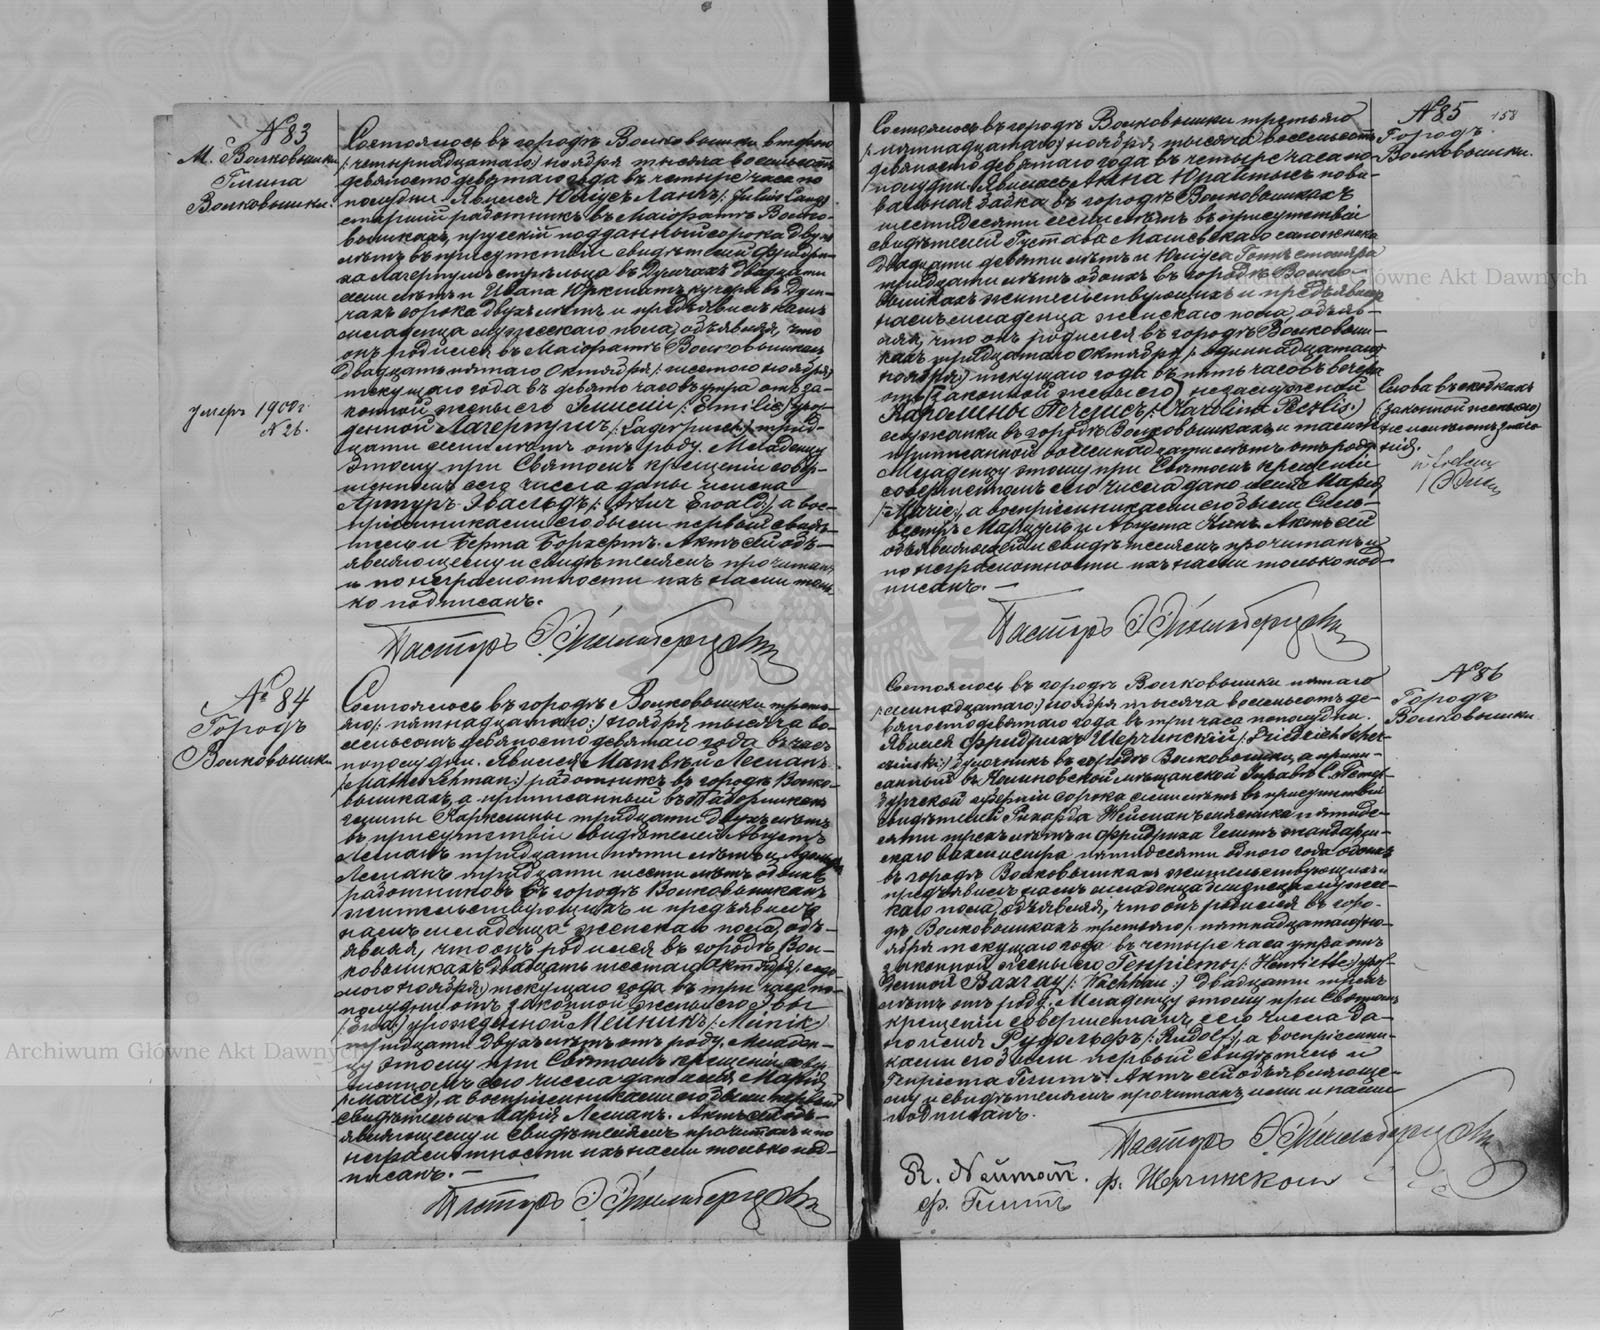 N 83
М. Волковышки
Гмина
Волковышки.
умеръ 1900 г.
N 26.
Состоялось въ городѣ Волковышки второго
/:четырнадцатаго:/ ноября тысяча восемьсотъ
девяносто девятаго года въ четыре часа по
полудни. Явился Юліусъ Лангъ /: Julius Lang:/
старшій работникъ въ Маіоратѣ Волко-
вышкахъ, прусскій подданный сорока двухъ
лѣтъ въ присутствіи свидѣтелей Фридри-
ха Лагерпушъ стрѣльца въ двадцати
семи лѣтъ и Ивана кучера въ
сорока двухъ лѣтъ и предъявилъ намъ
младенца мужескаго пола, объявляя, что
онъ родился въ Маіоратѣ Волковышкахъ
двадцать пятаго Октября /: шестого ноября:/
текущаго года въ девять часовъ утра отъ за-
конной жены его Эмиліи /: Emilie:/ урож-
денной Лагерпушъ /: Lagerpusch:/ трид-
цати семи лѣтъ отъ роду. Младенцу
этому при Святомъ крещеніи совер-
шенномъ сего числа даны имена
Артуръ Эвальдъ /: Artur Ewald:/, а вос-
пріемниками его были первый свидѣ-
тель и Берта Борхертъ. Актъ сей объ-
являющему и свидѣтелямъ прочитанъ
и по неграмотности ихъ нами толь-
ко подписанъ.
Пасторъ
№ 84
Городъ
Волковышки.
Состоялось въ городѣ Волковышки треть-
яго /: пятнадцатаго:/ ноября тысяча во-
семьсотъ девяносто девятаго года въ часъ
пополудни. Явился Матвѣй Леманъ
/: Lehman:/ работникъ въ городѣ Волко-
вышкахъ, а приписанный въ
гмины тридцати двухъ лѣтъ
въ присутствіи свидѣтелей Августъ
Леманъ тридцати пяти лѣтъ и
Леманъ тридцати шести лѣтъ обоихъ
работниковъ въ городѣ Волковышкахъ
жительствующихъ и предъявилъ
намъ младенца женскаго пола, объ-
являя, что онъ родился въ городѣ Вол-
ковышкахъ двадцать шестаго октября /: седь-
мого ноября:/ текущаго года въ три часа по-
полудни отъ законной жены его Эвы
/: Ewa:/ урожденной Мейникъ /: Minik:/
тридцати двухъ лѣтъ отъ роду. Младен-
цу этому при Святомъ крещеніи совер-
шенномъ сего числа дано имя Марія
/: Marie:/, а воспріемниками его были первый
свидѣтель и Марія Леманъ. Актъ сей объ-
являющему и свидѣтелямъ прочитанъ и по
неграмотности ихъ нами только под-
писанъ.
Пасторъ
N 85
158
Городъ
Волковышки.
Слова въ скобкахъ
/: законной жены его:/
не имѣютъ значе-
нія.
Состоялось въ городѣ Волковышки третьяго
/: пятнадцатаго:/ ноября тысяча восемьсотъ
девяносто девятаго года въ четыре часа по-
полудни. Явилась Анна Юрайтысъ пови-
вальная бабка въ городѣ Волковышкахъ
шестидесяти семи лѣтъ въ присутствіи
свидѣтелей Густава Машевскаго сапожника
двадцати девяти лѣтъ и Юліуса столяра
тридцати лѣтъ обоихъ въ городѣ Волко-
вышкахъ жительствующихъ и предъявила
намъ младенца женскаго пола, объяв-
ляя, что онъ родился въ городѣ Волковыш-
кахъ тридцатаго Октября /: одиннадцатаго
ноября:/ текущаго года въ пять часовъ вечера
отъ (законной жены его) незамужной
Каролины Печулисъ /: Karolina Peczlis:/
служанки въ городѣ Волковышкахъ и тамъ же
приписанной восемнадцати лѣтъ отъ роду
Младенцу этому при Святомъ крещеніи
совершенномъ сего числа дано имя Марія
/: Marie:/, а воспріемниками его были Силь-
вестръ и Августа Канъ. Актъ сей
объявляющей и свидѣтелямъ прочитанъ и
по неграмотности ихъ нами только под-
писанъ.
Пасторъ
N 86
Городъ
Волковышки
Состоялось въ городѣ Волковышки пятаго
/: семнадцатаго:/ ноября тысяча восемьсотъ де-
вяносто девятаго года въ три часа пополудни.
Явился Фридрихъ Шерчинскій /: Friedrich
въ городѣ Волковышки, а припи-
санный въ мѣщанской Управѣ С. Петер-
бургской губерніи сорока семи лѣтъ въ присутствіи
свидѣтелей Рихарда Нейманъ мясника пятиде-
сяти трехъ лѣтъ и Фридриха жандарм-
скаго вахмистра пятидесяти одного года обоихъ
въ городѣ Волковышкахъ жительствующихъ и
предъявилъ намъ младенца мужес-
каго пола, объявляя, что онъ родился въ горо-
дѣ Волковышкахъ третьяго /: пятнадцатаго:/ но-
ября текущаго года въ четыре часа утра отъ
законной жены его Генріетты /: Henriette:/ урож-
денной Вахгау /: Wachhau:/ двадцати трехъ
лѣтъ отъ роду. Младенцу этому при Святомъ
крещеніи совершенномъ сего числа да-
но имя Рудольфъ /: Rudolf:/, а воспріемни-
ками его были первый свидѣтель и
Генріета Актъ сей объявляюще-
му и свидѣтелямъ прочитанъ ими и нами
подписанъ.
Пасторъ
Archiwum Główne Akt Dawnych
Archiwum Główne Akt Dawnych